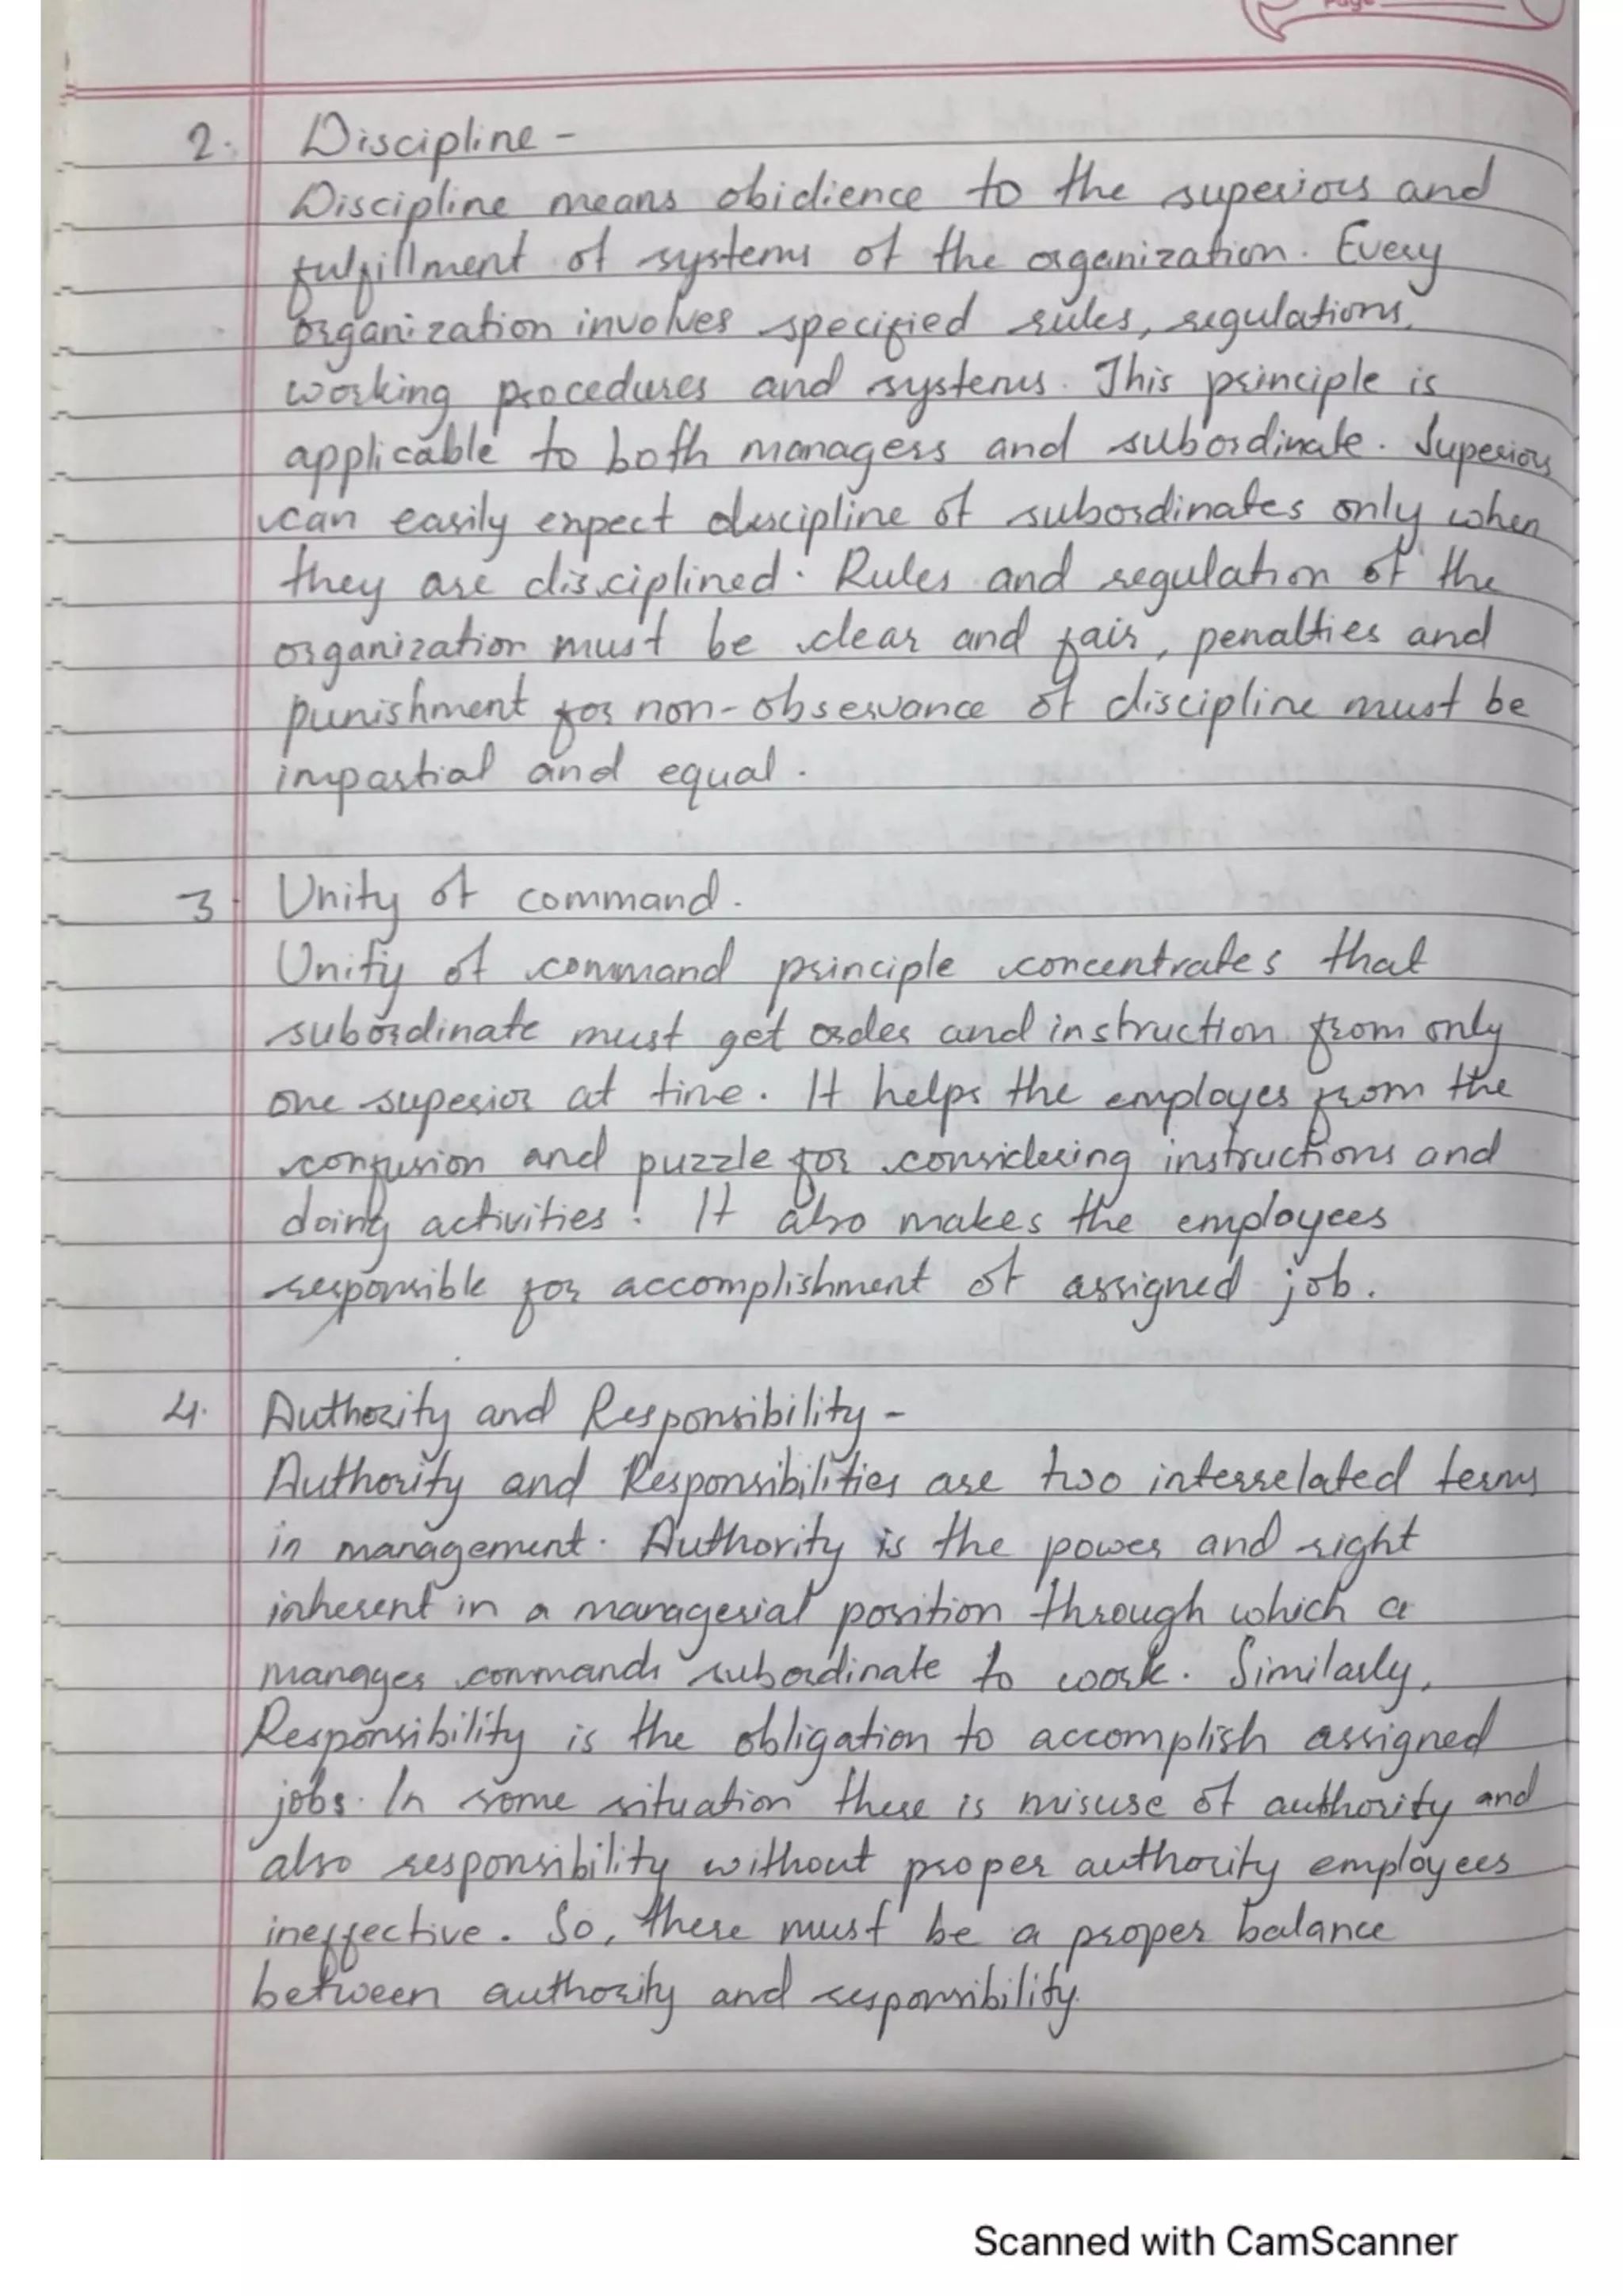 Page
2. Discipline -
Discipline means obidience to the superiors and
fulfillment of systems of the organization. Every
organization involves specified rules, regulations,
working procedures and systems. This principle is
applicable to both managers and subordinate. Superiors
can easily expect discipline of subordinates only when
they are disciplined. Rules and regulation of the
organization must be clear and fair, penalties and
punishment for non-observance of discipline must be
impartial and equal.
3. Unity of command.
Unity of command principle concentrates that
subordinate must get order and instruction from only
one superior at time. It helps the employes from the
confusion and puzzle for considering instructions and
doing activities. It also makes the employees
responsible for accomplishment of assigned job.
4. Authority and Responsibility -
Authority and Responsibilities are two interrelated terms
in management. Authority is the power and right
inherent in a managerial position through which a
manager commands subordinate to work. Similarly,
Responsibility is the obligation to accomplish assigned
jobs. In some situation there is misuse of authority and
also responsibility without proper authority employees
ineffective. So, there must be a proper balance
between authority and responsibility.
Scanned with CamScanner